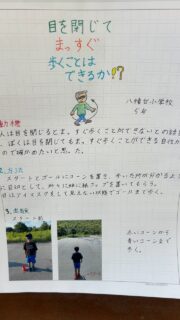 目を閉じて
まっすぐ
歩くことは
できるか!?
八幡台小学校
動機
人は目を閉じるとまっすぐ歩くことができないとの話を
ぼくは目を閉じても、まっすぐ歩くことができる自信が
ので確かめたいと思った。
方法
スタートとゴールにコーンを置き、歩いた所が分かるよう
に目印として、
目はアイマスクをして見えない状態でゴールまで歩く。
スタート前
赤いコーンから
青いコーンまで
歩く。